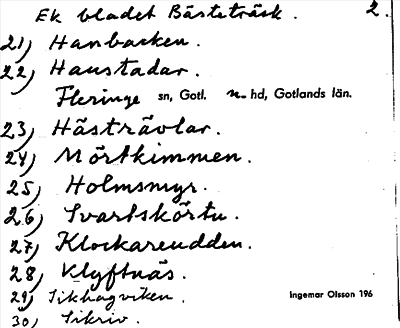 Ek bladet Bästeträsk. 2.
21) Hanbacken.
22) Haustadar.
Fleringe sn, Gotl. n. hd, Gotlands län.
23) Hästrävlar.
24) Mörtkimmen.
25) Holmsmyr.
26) Svartskörtu.
27) Klockareudden.
28) Klyftnäs.
29) Sikhagviken.
30) Sikriv.
Ingemar Olsson 196